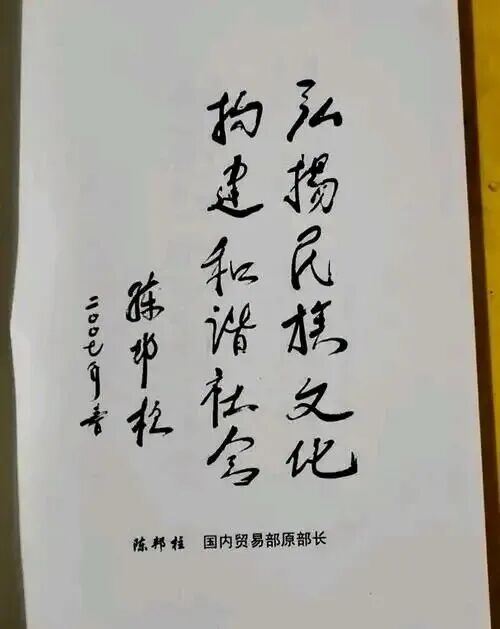 弘扬民族文化
构建和谐社会
陈邦柱
二〇〇七年春
陈邦柱 国内贸易部原部长